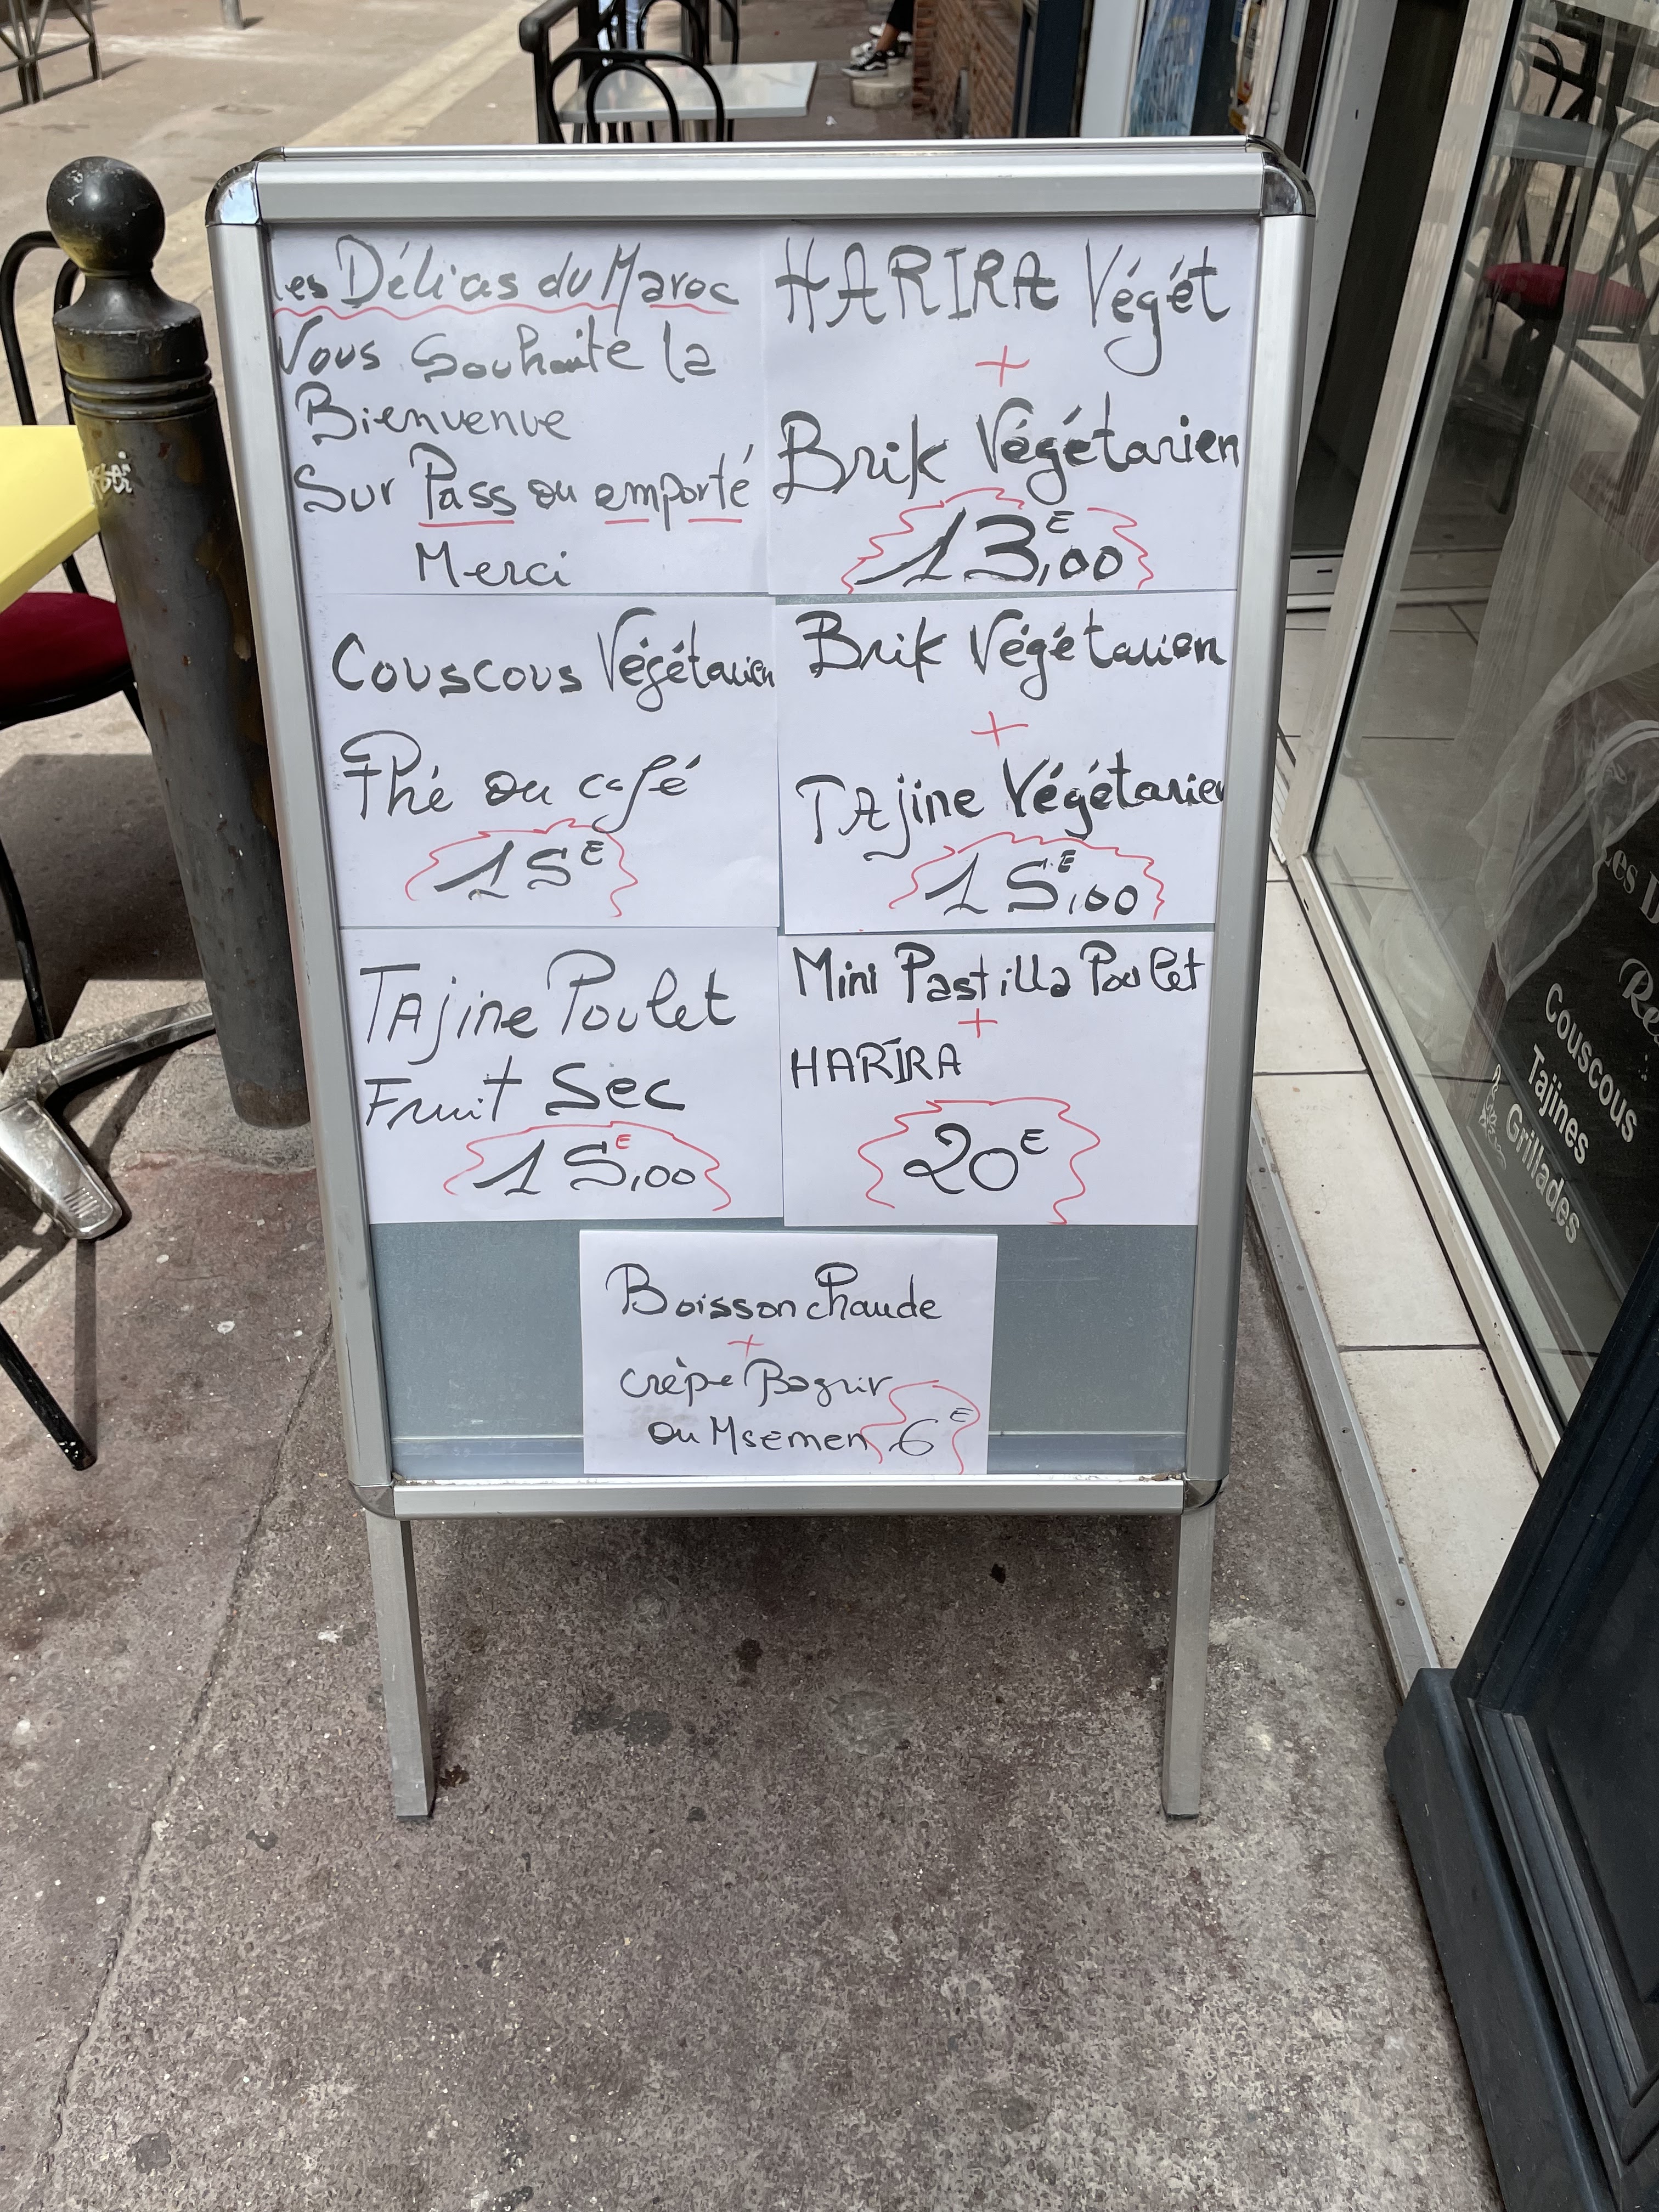 Les Délices du Maroc
Vous Souhaite la
Bienvenue
Sur Pass ou emporté
Merci
HARIRA Végét
+
Brik Végétarien
13,00E
Couscous Végétarien
Thé ou café
15E
Brik Végétarien
+
TAjine Végétarien
15,00E
TAjine Poulet
Fruit Sec
15,00E
Mini Pastilla Poulet
+
HARIRA
20E
Boisson chaude
+
crèpe Bagrir
ou Msemen 6E
Les D
Re
Couscous
Tajines
Grillades